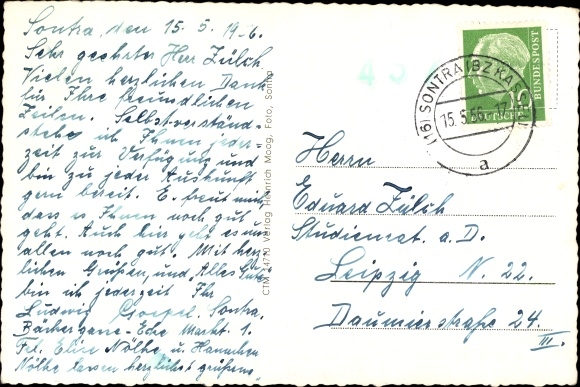 Sontra, den 15. 5. 1956.
Sehr geehrter Herr Zülch
Vielen herzlichen Dank
für Ihre freundlichen
Zeilen. Selbstverständ-
stehe ich Ihnen jeder-
zeit zur Verfügung und
bin zu jeder Auskunft
gern bereit. E. freut mich,
dass es Ihnen noch gut
geht. Auch hier geht es uns
allen noch gut. Mit herz-
lichen Grüßen, und "Alles Gute"
bin ich jederzeit Ihr
Ludwig Sontra,
Bäckergasse-Ecke Markt 1.
Frl. Elise Nölke u. Hannchen
Nölke lassen herzlichst grüßen.
CTM Verlag Heinrich Moog, Foto, Sontra
DEUTSCHE BUNDESPOST
10
(16) SONTRA (BZ KASSEL)
15.5.56. 17
a
Herrn
Eduard Zülch
Studienrat. a. D.
Leipzig N. 22.
Daumierstraße 24.
III.